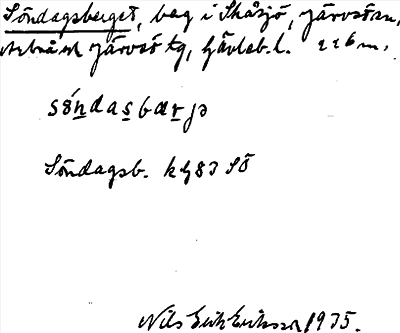 Söndagsberget, beg i Skåsjö, Järvsö sn,
Arbrå ock Järvsö tg, Gävleb. l. 226 m.
söndasbærjə
Söndagsb. k G83 SÖ
Nils Erik Eriksson 1935.